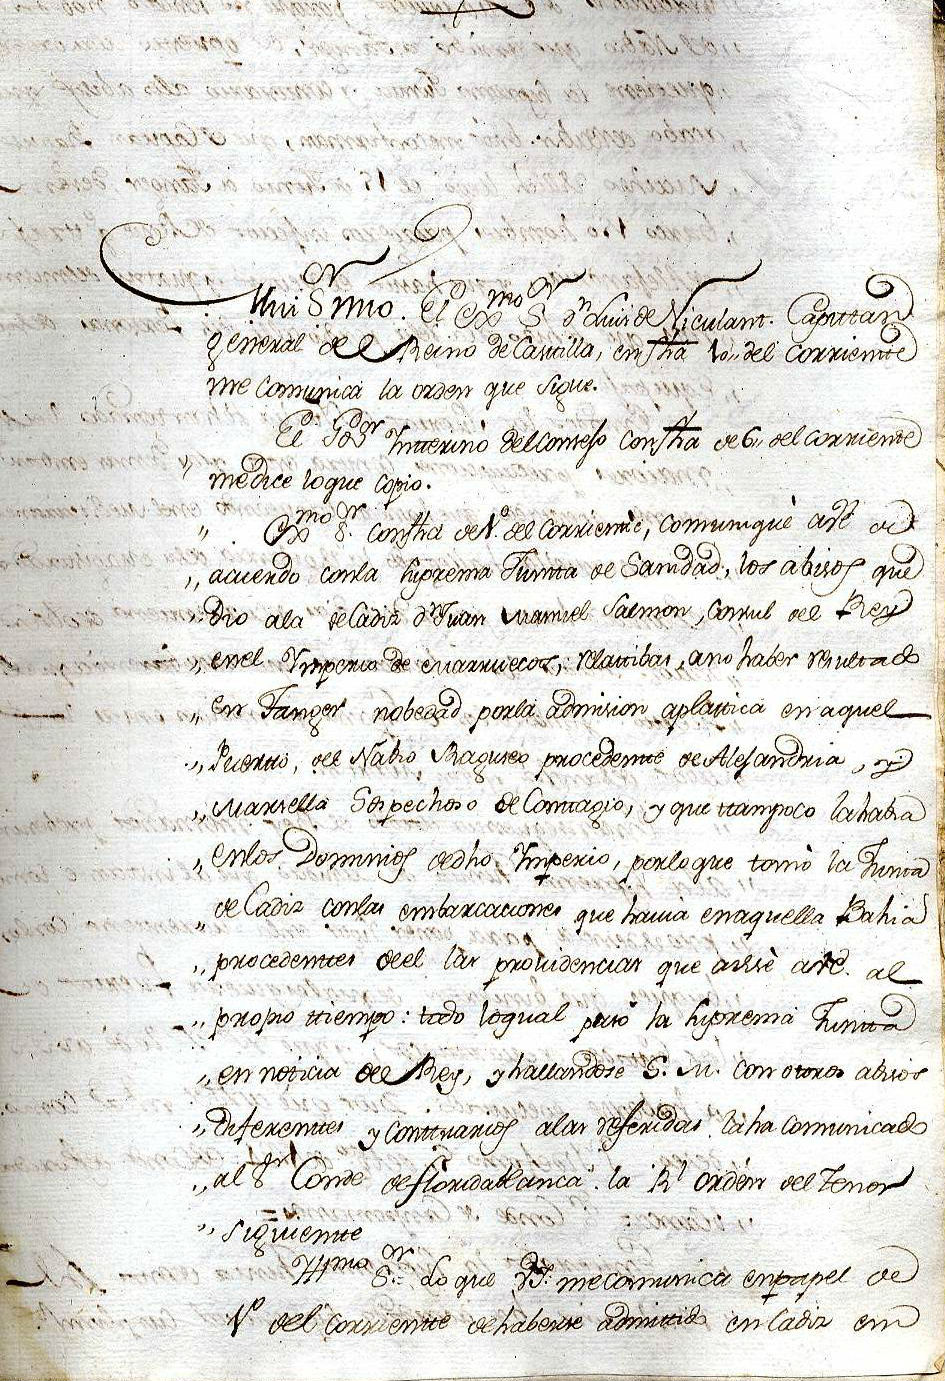 Mui Sr mio. El Exmo Sr Dn Luis de Niculant. Capittan
general de el Reino de Castilla, en fha 10,, del corriente
me comunica la orden que sigue.
El Sor Gor Ynterino del consejo con fha de 6,, del corriente
me dice lo que copio.
„ Exmo Sr con fha de 1º. del Corriente, comuniquè a V.E. de
„ acuerdo con la suprema Juntta de Sanidad, los abisos que
„ dio a la de Cadiz Dn Juan Manuel Salmon, Consul del Rey
„ en el Ymperio de Marruecos, relattibos, a no haber resultado
„ en Tanger nobedad por la admision a plattica en aquel
„ Puertto, del Nabio Raguseo procedente de Alejandria, y
„ Marsella Sospechoso de Contagio, y que ttampoco la habia
„ en los Dominios de dho Ymperio, por lo que tomò la Junta
„ de Cadiz con las embarcaciones que havia en aquella Bahia
„ procedenttes de el las providencias que avisè a V.E. al
„ propio ttiempo: todo lo qual puso la suprema Juntta
„ en noticia del Rey, y hallandose S. M. con otros abisos
„ diferenttes y conttrarios a las referidas, la ha comunicado
„ al Sr Conde de floridablanca la Rl orden del tenor
„ siguiente
Yllmo Sor. Lo que V.S.Y. me comunica en papel de
1º del corriente de haberse admittido en Cadiz en